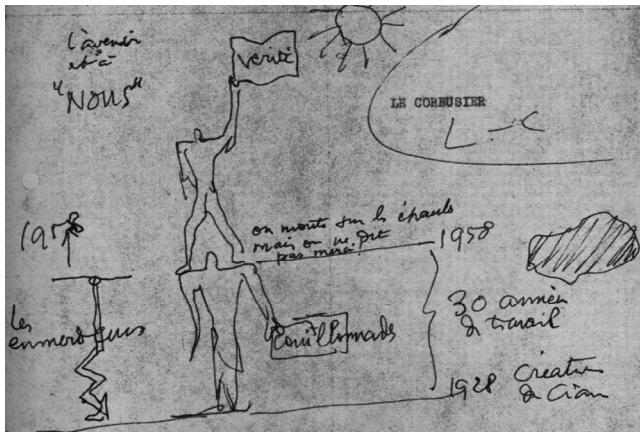 l'avenir
est à
"NOUS"
verité
LE CORBUSIER
L-C
1958
on monte sur les épaules
mais on ne dit
pas merci
1958
les
emmerdeurs
couillonnade
30 années
de travail
1928 Création
de Ciam